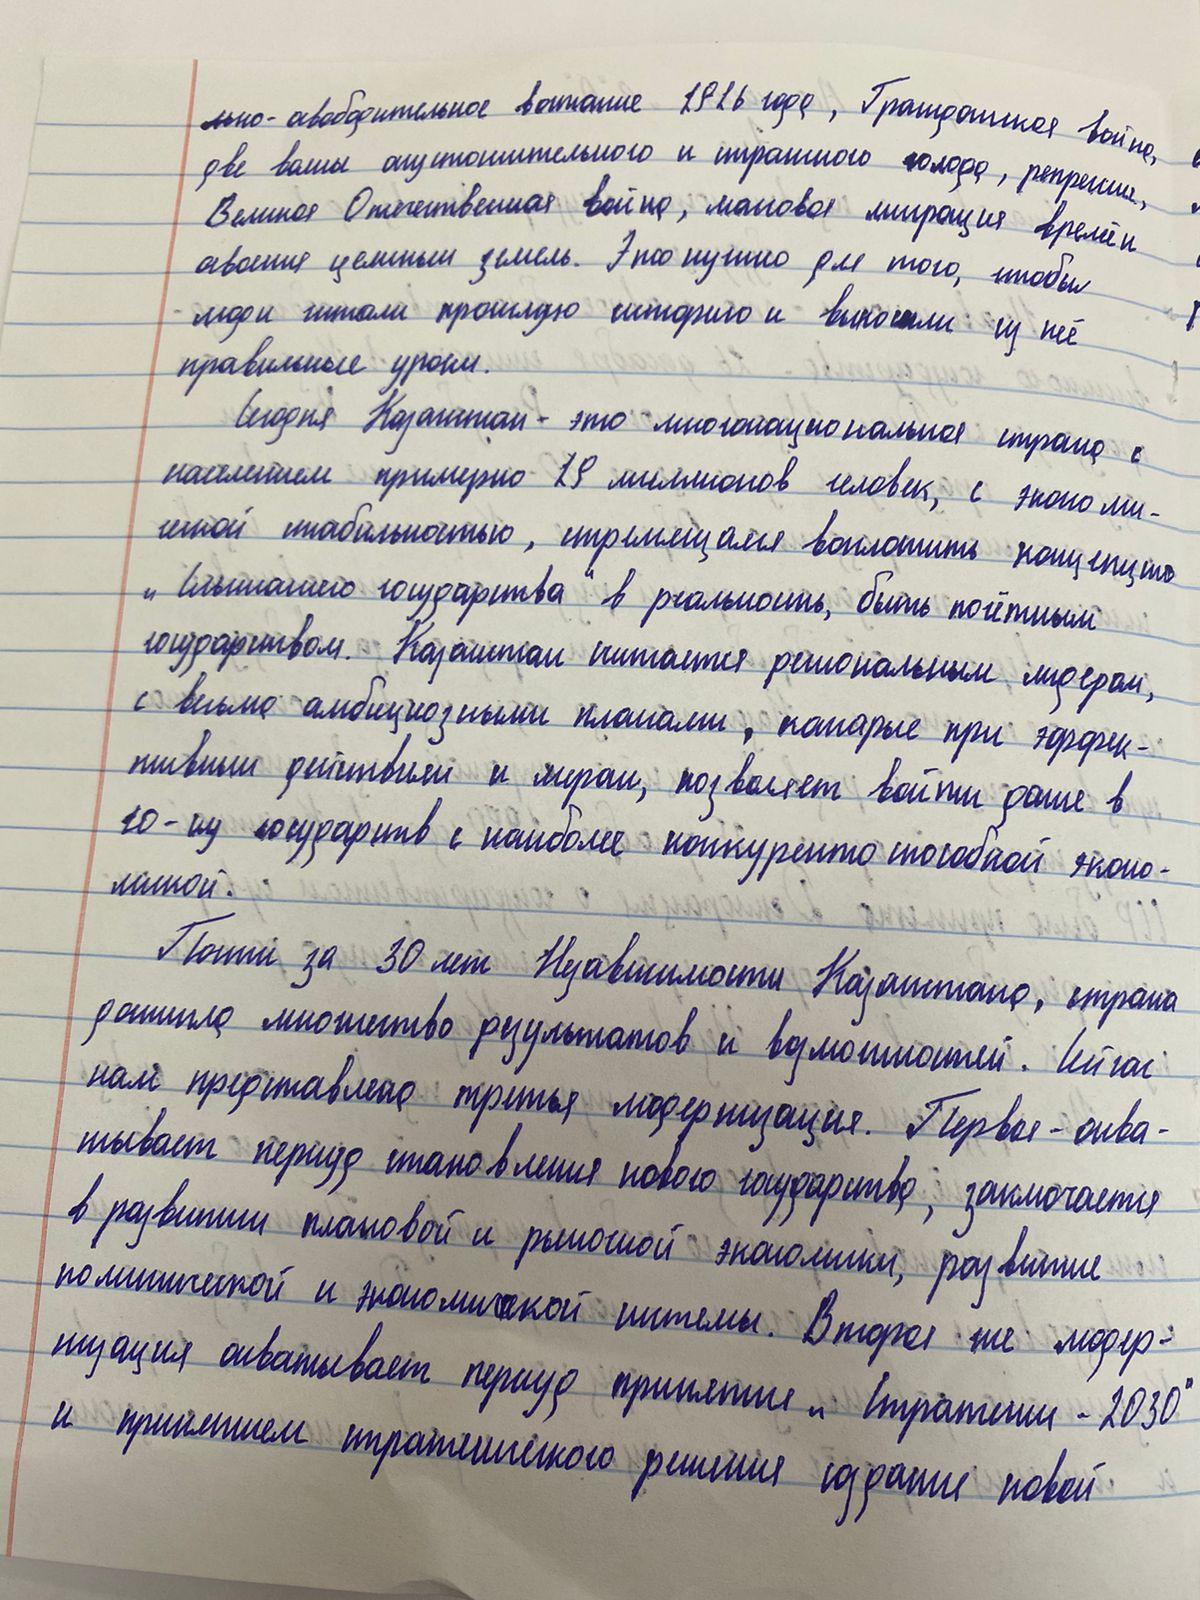 льно-освободительное восстание 1916 года, Гражданская война,
две волны опустошительного и страшного голода, репрессии,
Великая Отечественная война, массовая миграция времён
освоения целинных земель. Это нужно для того, чтобы
люди читали прошлую историю и выносили из неё
правильные уроки.
Сегодня Казахстан - это многонациональная страна с
населением примерно 19 миллионов человек, с экономи-
ческой стабильностью, стремящаяся воплотить концепцию
„Слышащего государства“ в реальность, быть почётным
государством. Казахстан считается региональным лидером,
с весьма амбициозными планами, которые при эффек-
тивных действиях и мерах, позволяет войти даже в
10-ку государств с наиболее конкурентоспособной эконо-
микой.
Почти за 30 лет Независимости Казахстана, страна
достигла множество результатов и возможностей. Сейчас
нам представлена третья модернизация. Первая - охва-
тывает период становления нового государства, заключается
в развитии плановой и рыночной экономики, развитие
политической и экономической системы. Вторая же модер-
низация охватывает период принятие „Стратегии - 2030“
и принятием стратегического решения создание новой